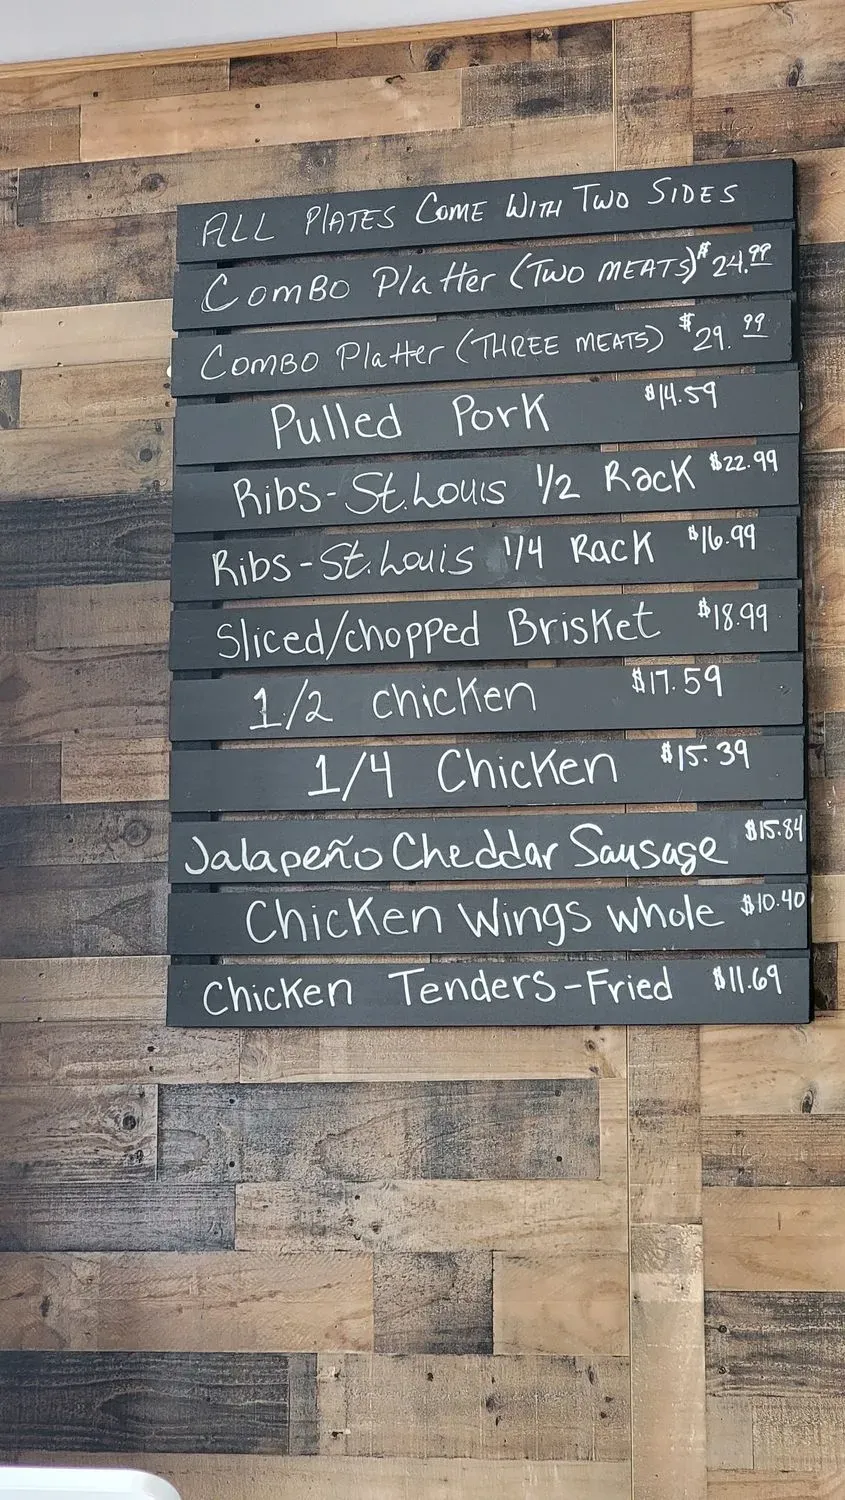 ALL PLATES COME WITH TWO SIDES
COMBO Platter (TWO MEATS) $24.99
COMBO Platter (THREE MEATS) $29.99
Pulled Pork $14.59
Ribs-St.Louis 1/2 Rack $22.99
Ribs-St.Louis 1/4 Rack $16.99
Sliced/chopped Brisket $18.99
1/2 chicken $17.59
1/4 Chicken $15.39
Jalapeño Cheddar Sausage $15.84
Chicken Wings whole $10.40
Chicken Tenders-Fried $11.69